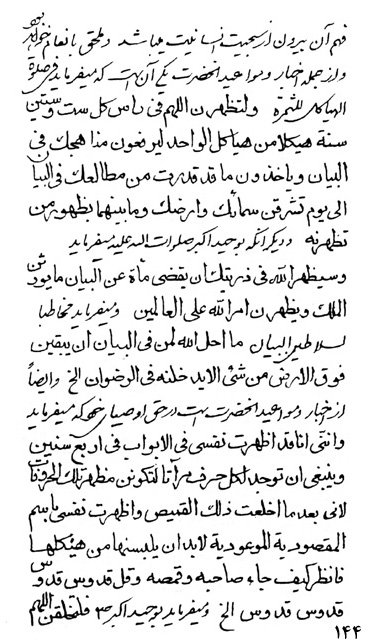 فهم آن بیرون از سجیت انسانیت میباشد و ملحق بانعام خواهد بود
و از جمله اخبار و مواعید انحضرت یکی آن است که میفرماید فی صلوة
الهیاکل للثمرة ولتظهرن اللهم فی رأس کل ست وستین
سنة هیکلا من هیاکل الواحد لیرفعون مناهجک فی
البیان ویاخذون ما قد قدرت من مطالعک فی البیان
الی یوم تشرقن سمائک وارضک وما بینهما بظهور من
تظهرنه و دیگر آنکه بوحید اکبر صلوات الله علیه میفرماید
وسیظهر الله فی ذریتک ان یقضی مأة عن البیان ما یورثن
الملک ویظهرن امر الله علی العالمین ومیفرماید مخاطبا
لسلاطین البیان ما احل الله لمن فی البیان ان یبقین
فوق الارض من شئ الا یدخلنه فی الرضوان الخ وایضاً
از اخبار و مواعید انحضرت است در حق اوصیای خود که میفرماید
واننی انا قد اظهرت نفسی فی الابواب فی اربع سنین
وینبغی ان توجد لکل حرف مرآتا لتکونن مظهر تلک الحروفات
لانی بعد ما اخلعت ذلک القمیص واظهرت نفسی باسم
المقصودیة الموعودیة لابد ان یلبسنها من هیئکلها
فانظر کیف جاء صاحبه وقمصه وقل قدوس قدوس
قدوس قدوس الخ ومیفرماید بوحید اکبر فلتخلقن اللهم
۱۴۴